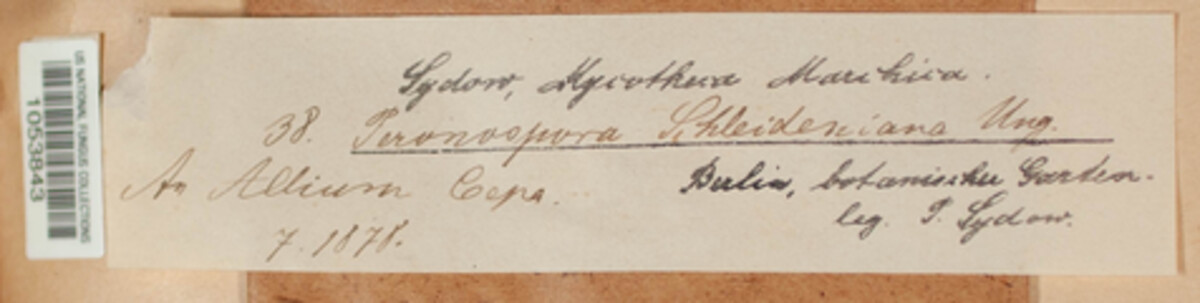 US NATIONAL FUNGUS COLLECTIONS
1053843
Sydow, Mycotheca Marchica.
38. Peronospora Schleideniana Ung.
An Allium Cepa.
Berlin, botanischer Garten.
7. 1878.
leg. P. Sydow.